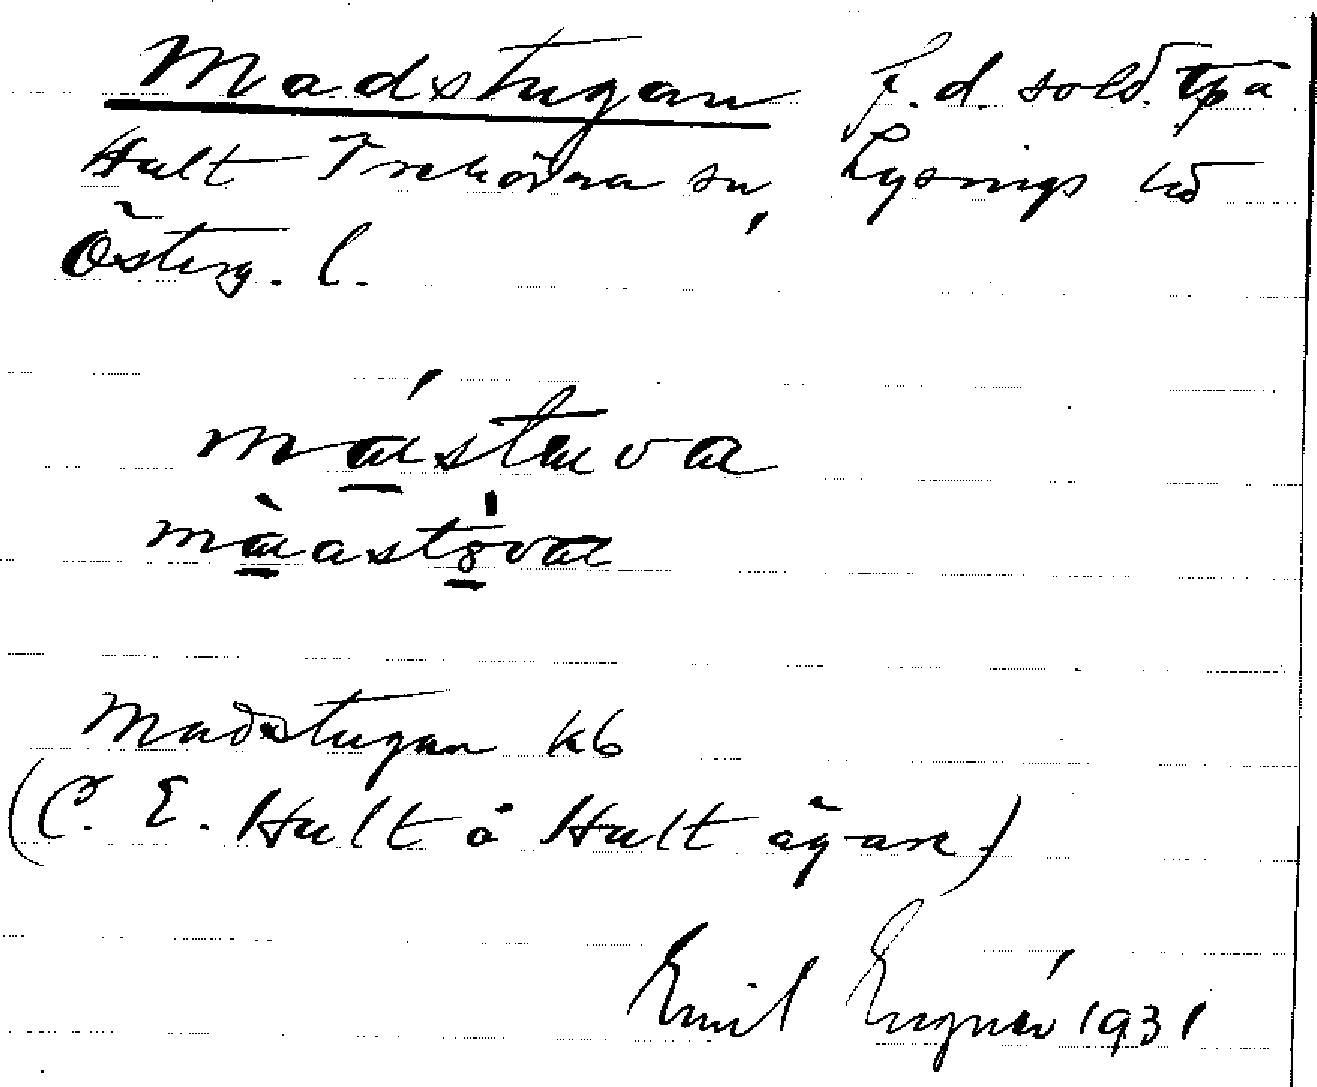 Madstugan f.d. sold. tp å
Hult Trehörna sn, Lysings hd
Österg. l.
mástuva
màastòva
Madstugan kb
(C. E. Hult å Hult ägare)
Emil 1931